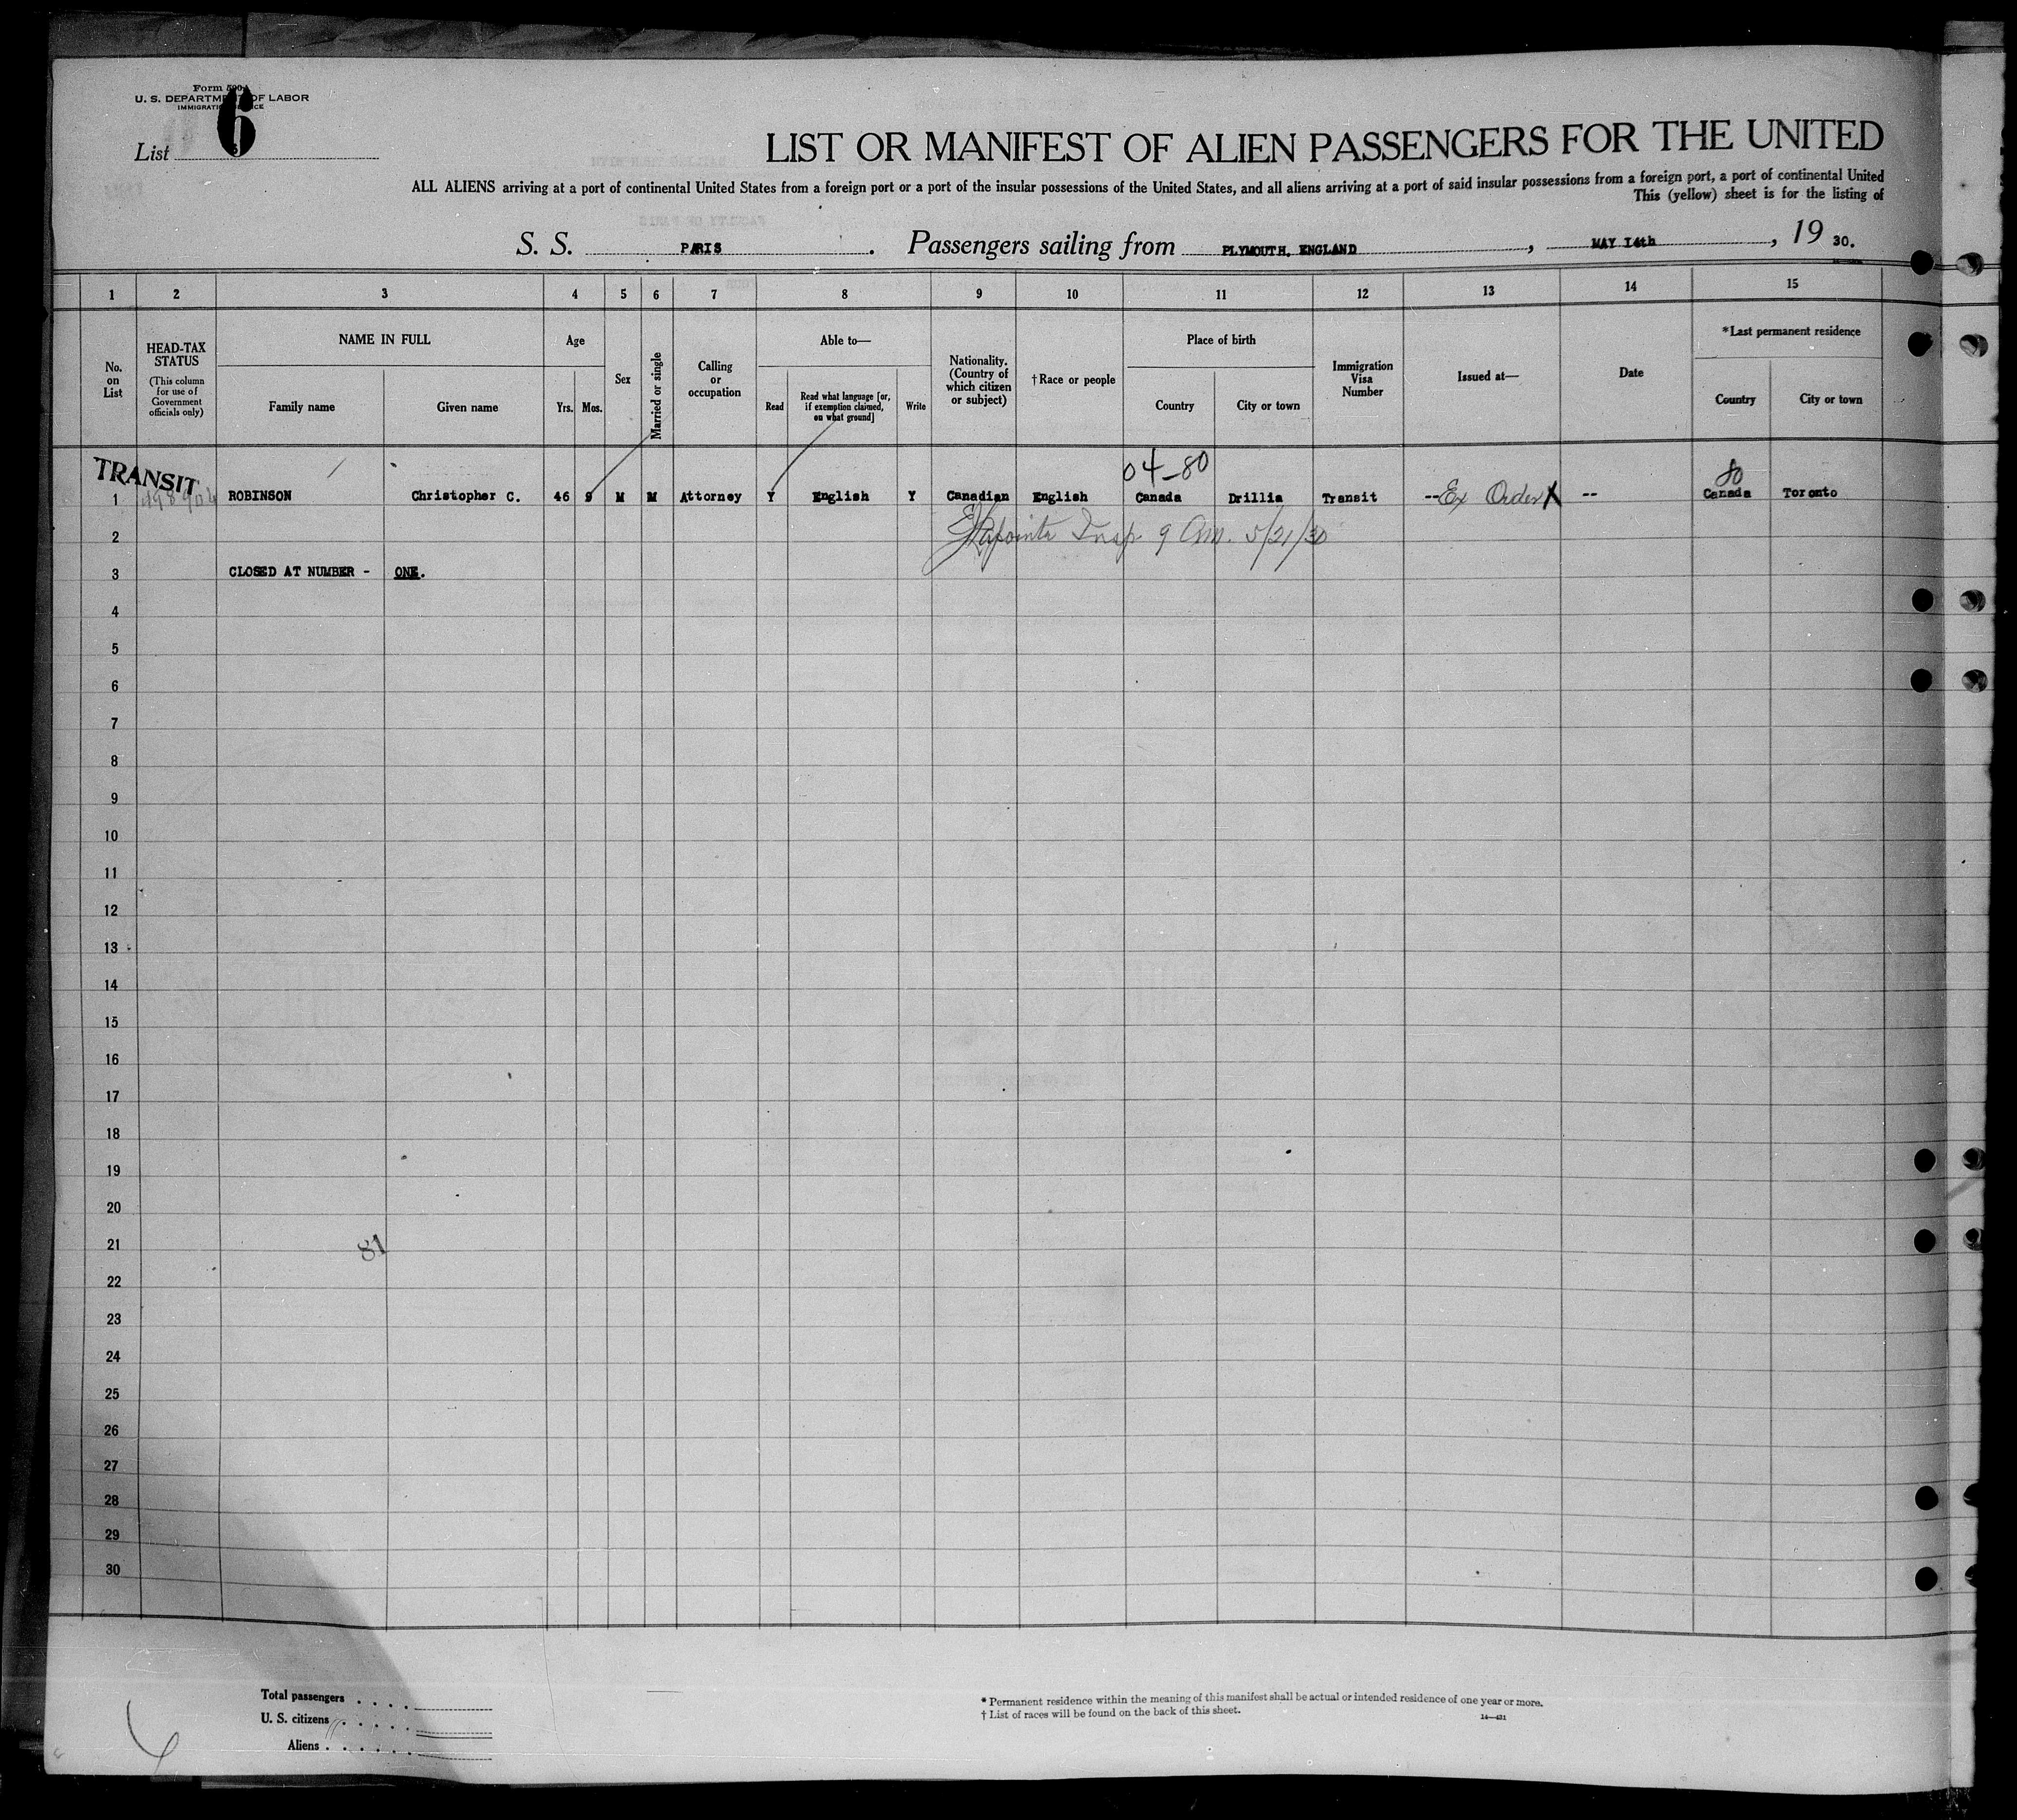 Form 500
U. S. DEPARTMENT OF LABOR
IMMIGRATION SERVICE
List 6
LIST OR MANIFEST OF ALIEN PASSENGERS FOR THE UNITED
ALL ALIENS arriving at a port of continental United States from a foreign port or a port of the insular possessions of the United States, and all aliens arriving at a port of said insular possessions from a foreign port, a port of continental United
This (yellow) sheet is for the listing of
S. S. PARIS . Passengers sailing from PLYMOUTH, ENGLAND , MAY 14th , 19 30.
1 2 3 4 5 6 7 8 9 10 11 12 13 14 15
No. on List
HEAD-TAX STATUS (This column for use of Government officials only)
NAME IN FULL
Family name Given name
Age
Yrs. Mos.
Sex
Married or single
Calling or occupation
Able to—
Read
Read what language [or, if exemption claimed, on what ground]
Write
Nationality. (Country of which citizen or subject)
† Race or people
Place of birth
Country City or town
Immigration Visa Number
Issued at—
Date
*Last permanent residence
Country City or town
TRANSIT
04-80
80
1 ROBINSON Christopher C. 46 9 M M Attorney Y English Y Canadian English Canada Drillia Transit --Ex Order X -- Canada Toronto
2 Lapointe Insp. 9 Am. 5/21/30
3 CLOSED AT NUMBER - ONE.
4
5
6
7
8
9
10
11
12
13
14
15
16
17
18
19
20
21 81
22
23
24
25
26
27
28
29
30
Total passengers . . . .
U. S. citizens . . . . .
Aliens . . . . . .
* Permanent residence within the meaning of this manifest shall be actual or intended residence of one year or more.
† List of races will be found on the back of this sheet.
14—431